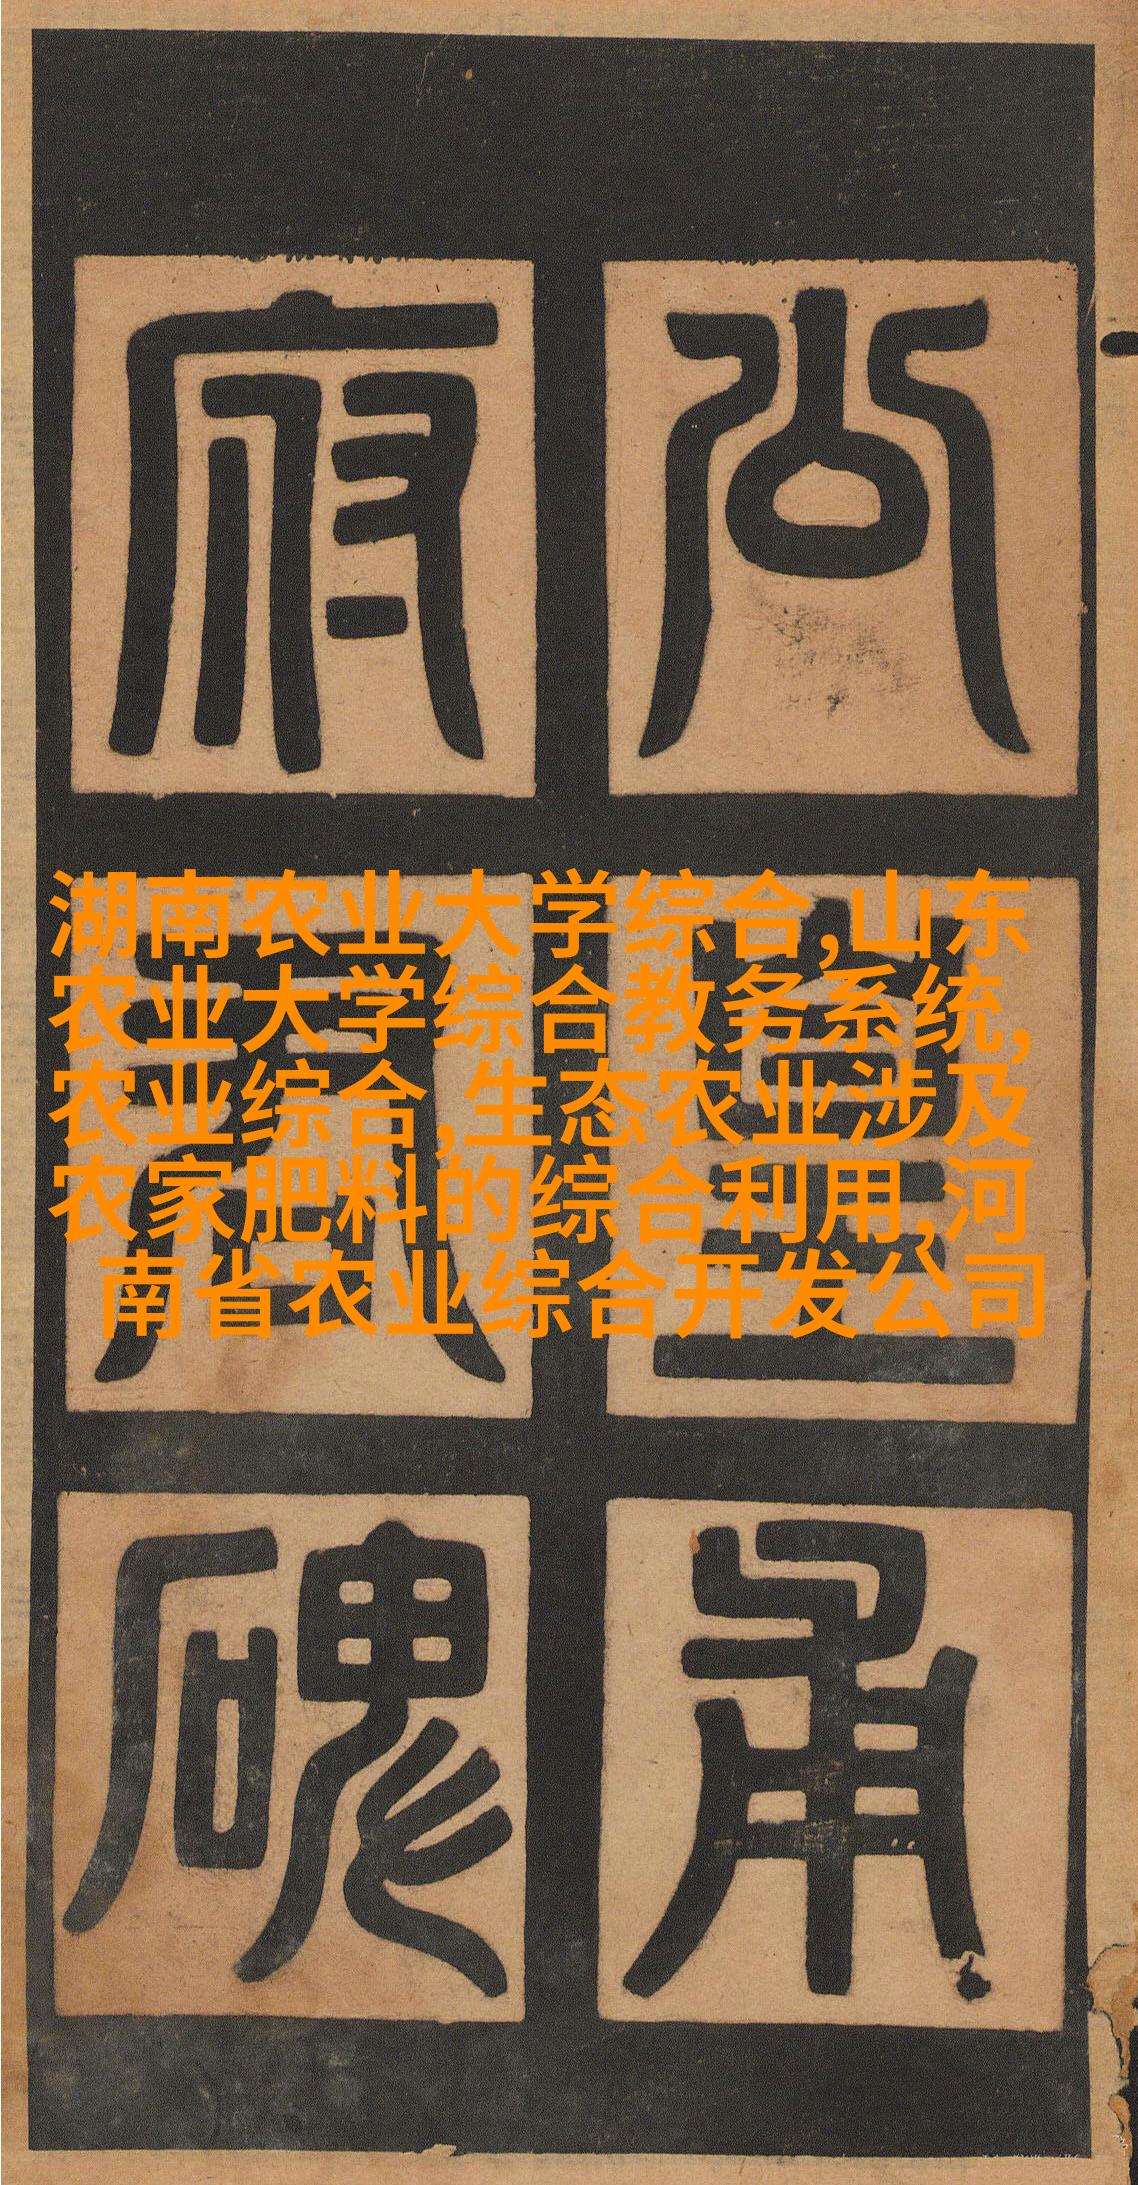 公皇甫
府君碑
湖南农业大学综合,山东
农业大学综合教务系统,
农业综合,生态农业涉及
农家肥料的综合利用,河
南省农业综合开发公司